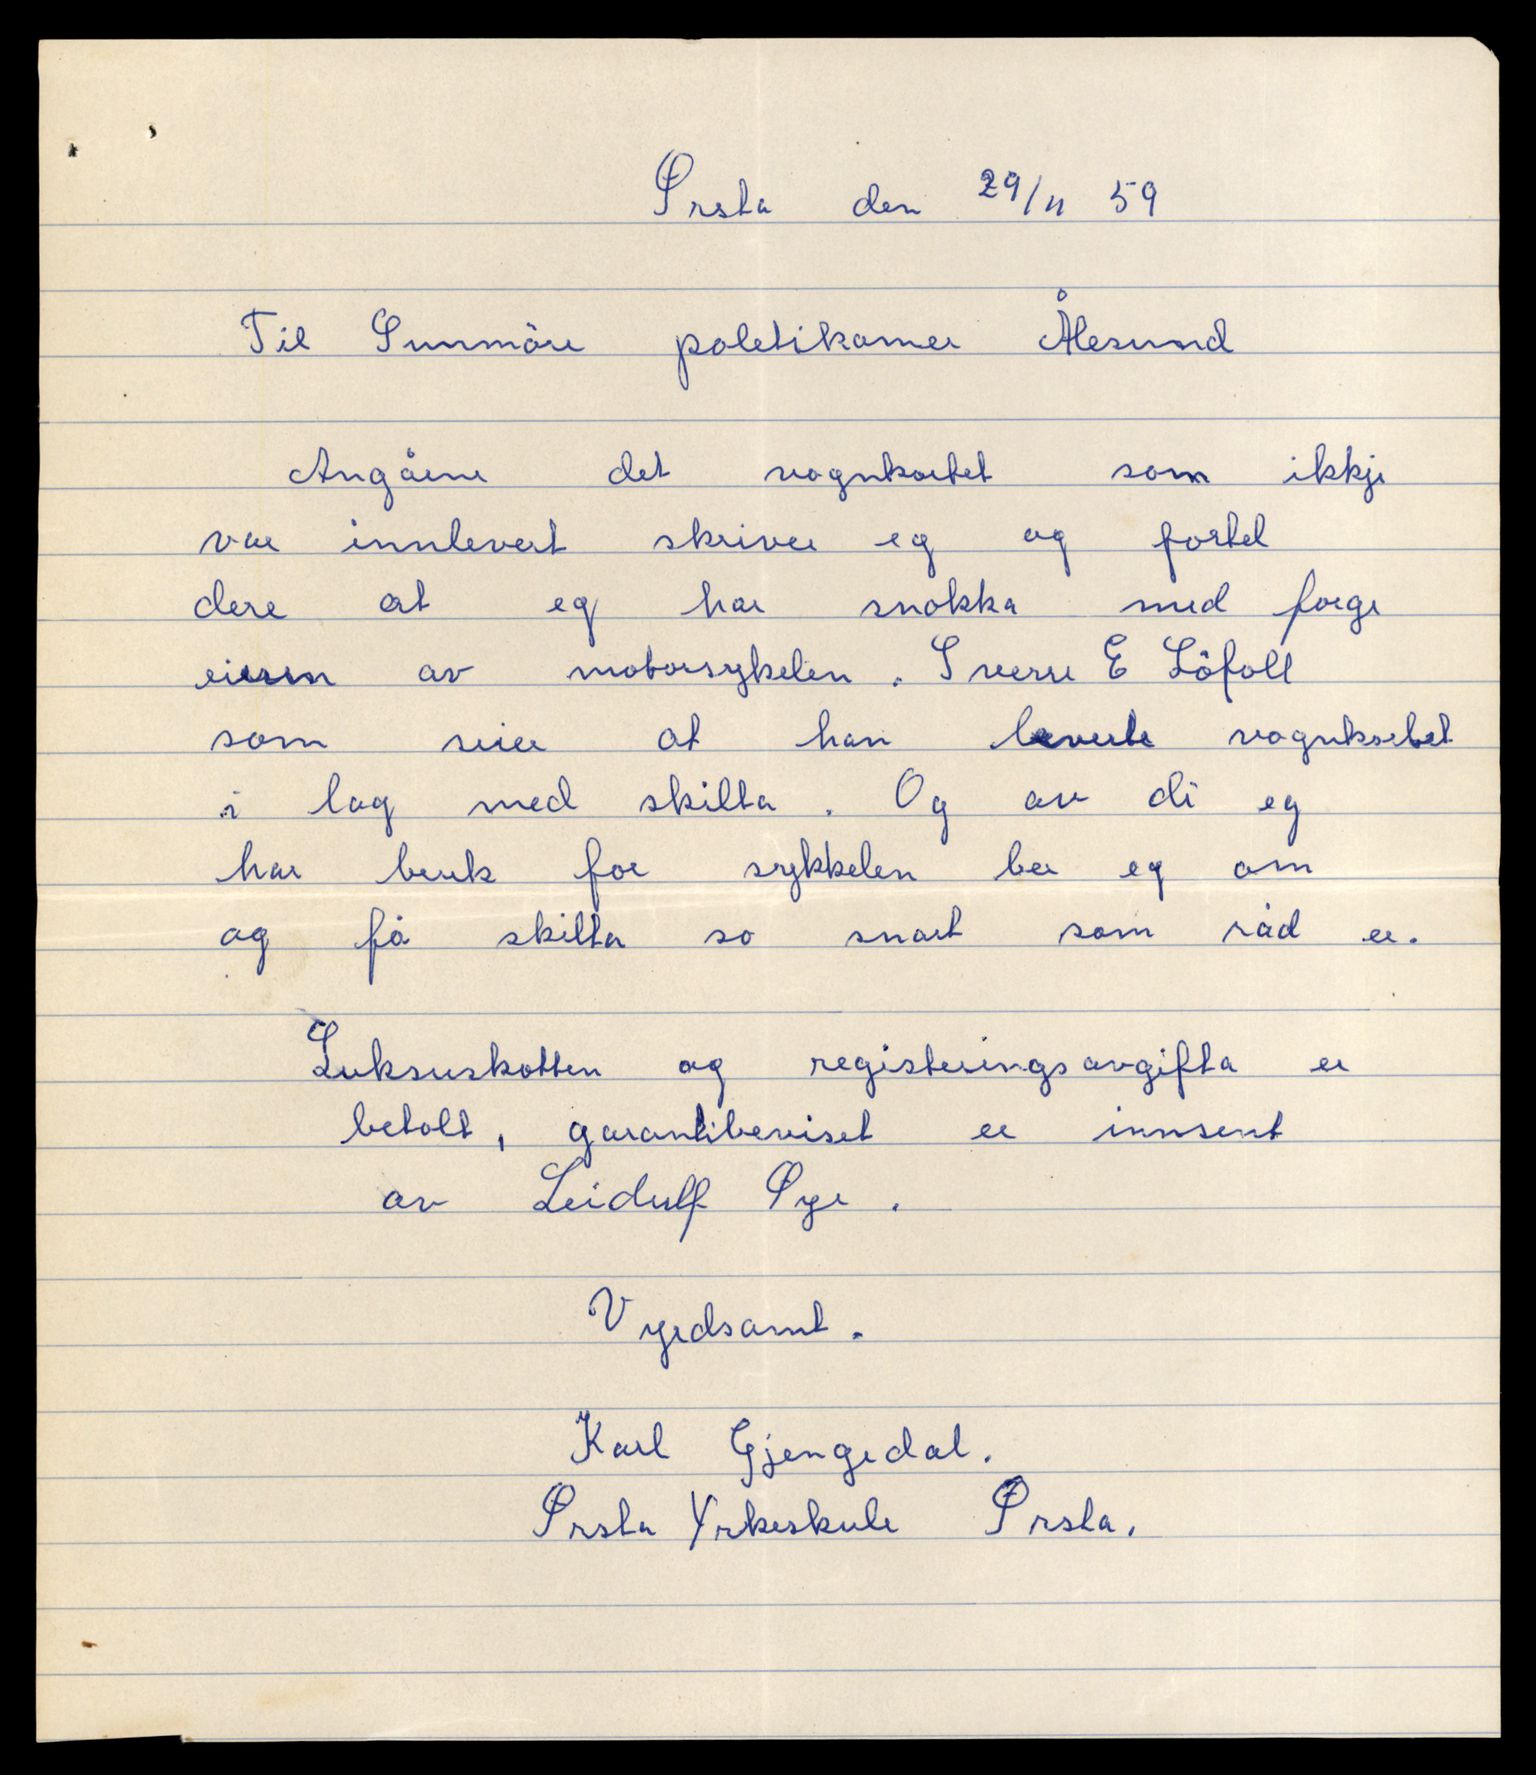 Ørsta den 29/11 59
Til Sunnmöre poletikamer Ålesund
Angåene det vognkortet som ikkje
var innlevert skriver eg og fortel
dere at eg har snokka med forge
eieren av motorsykelen. Sverre E Löfoll
som seier at han leverte vognkortet
i lag med skilta. Og av di eg
har bruk for sykkelen ber eg om
og få skilta so snart som råd er.
Luksuskatten og registeringsavgifta er
betalt, garantibeviset er innsent
av Leidulf Øye.
Vyrdsamt.
Karl Gjengedal.
Ørsta Yrkeskule Ørsta.